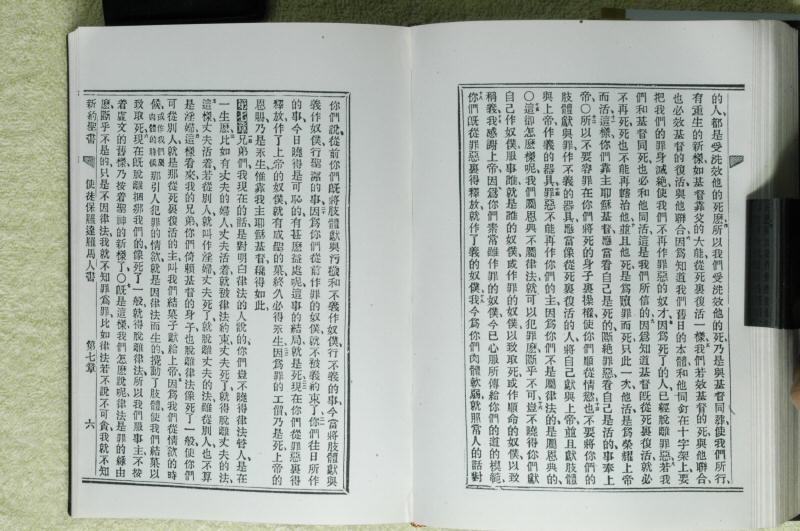 的人都是受洗效他的死麽所以我們受洗效他的死乃是與基督同葬使我們所行
有重生的新樣如基督靠父的大能從死裏復活一樣我們若效基督的死與他聯合
也必效基督的復活與他聯合因爲知道我們舊日的本體和他同釘在十字架上要
把我們的罪身滅絕使我們不再作罪惡的奴才因爲死了的人已經脫離罪惡若我
們和基督同死也必和他同活這是我們所信的因爲知道基督旣從死裏復活就必
不再死死也不能再轄治他並且他死是爲贖罪而死只此一次他活是爲榮耀上帝
而活這樣你們靠主耶穌基督應當看自己是死的斷絕罪惡看自己是活的事奉上
帝〇所以不要容罪在你們將死的身子裏操權使你們順從情慾也不要將你們的
肢體獻與罪作不義的器具應當像從死裏復活的人將自己獻與上帝並且獻肢體
與上帝作義的器具罪惡不能再作你們的主因爲你們不是屬律法的是屬恩典的
〇這卻怎麽樣呢我們屬恩典不屬律法就可以犯罪麽斷乎不可豈不曉得你們獻
自己作奴僕服事誰就是誰的奴僕或作罪的奴僕以致取死或作順命的奴僕以致
稱義我感謝上帝因爲你們素常雖作罪的奴僕今已心服所傳給你們的道的模範
你們旣從罪惡裏得釋放就作了義的奴僕我今爲你們肉體軟弱就照常人的話對
你們說從前你們旣將肢體獻與污穢和不義作奴僕行不義的事今當將肢體獻與
義作奴僕行聖潔的事因爲你們從前作罪的奴僕就不被義約束了你們往日所作
的事今日曉得是可恥的有甚麽益處呢這事的結局就是死現在你們從罪惡裏得
釋放作了上帝的奴僕就有成聖的菓終久必得永生因爲罪的工價乃是死上帝的
恩賜乃是永生惟靠我主耶穌基督纔得如此
第七章兄弟們我現在的話是對明白律法的人說的你們豈不曉得律法管人是在
一生麽比如有丈夫的婦人丈夫活着就被律法約束丈夫死了就得脫離丈夫的法
這樣丈夫活着若從別人就叫作淫婦丈夫死了就脫離丈夫的法雖從別人也不算
是淫婦這樣看來我的兄弟你們倚賴基督的身子也脫離律法像死了一般使你們
可從別人就是那從死裏復活的主叫我們結菓子獻給上帝因爲我們從情慾的時
候或作我們屬肉體的時候那引人犯罪的情慾就是因律法而生的攪動了肢體使我們結菓以
致取死現在旣脫離捆那我們的像死了一般就得脫離律法所以我們服事主不按
着虛文的舊樣乃按着聖神的新樣了〇旣是這樣我們怎麽說呢律法是罪的緣由
麽斷乎不是的只是不因律法我就不知罪爲罪比如律法若不說不可貪我就不知
新約聖書 使徒保羅達羅馬人書 第七章 六